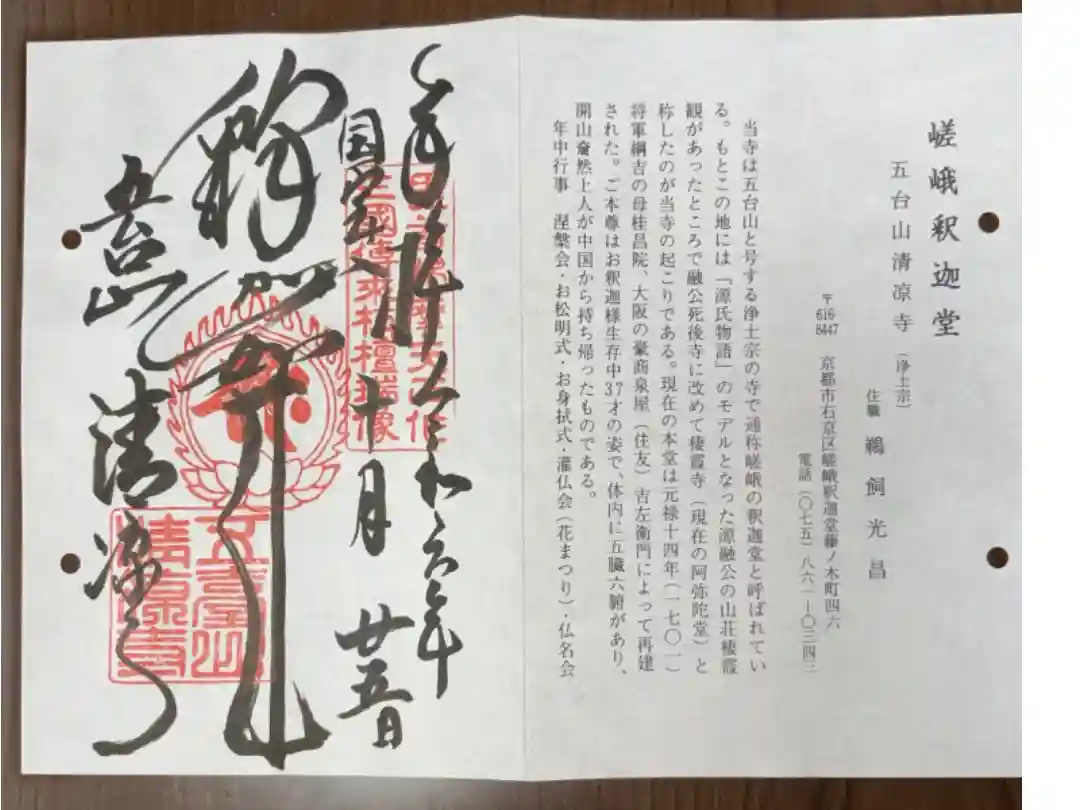 嵯峨釈迦堂
五台山清凉寺（浄土宗）
住職 鵜飼光昌
〒616-8447 京都市右京区嵯峨釈迦堂藤ノ木町四六
電話（〇七五）八六一－〇三四三
当寺は五台山と号する浄土宗の寺で通称嵯峨の釈迦堂と呼ばれてい
る。もとこの地には「源氏物語」のモデルとなった源融公の山荘棲霞
観があったところで融公死後寺に改めて棲霞寺（現在の阿弥陀堂）と
称したのが当寺の起こりである。現在の本堂は元禄十四年（一七〇一）
将軍綱吉の母桂昌院、大阪の豪商泉屋（住友）吉左衛門によって再建
された。ご本尊はお釈迦様生存中37才の姿で、体内に五臓六腑があり、
開山奝然上人が中国から持ち帰ったものである。
年中行事 涅槃会・お松明式・お身拭式・灌仏会（花まつり）・仏名会
奉拝 令和六年
三國傳来栴檀瑞像
十月廿五日
釋迦
五台山
清凉寺
五臺山
清凉寺